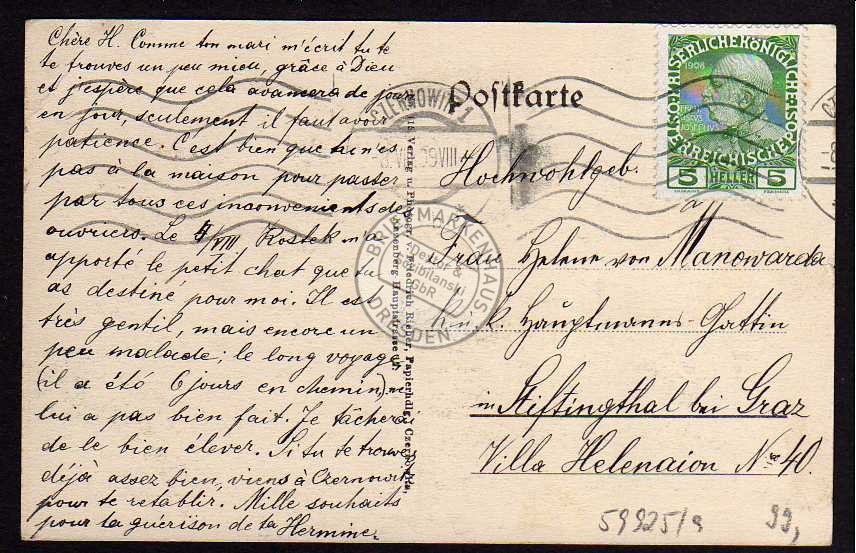 Chère H. Comme ton mari m'écrit tu te
te trouves un peu mieu, grâce à Dieu
et j'espère que cela avancera de jour
en jour, seulement il faut avoir
patience. C'est bien que tu n'es
pas à la maison pour passer
par tous ces inconvenients de
ouvriers. Le 4/VIII Kostek m'a
apporté le petit chat que tu
as destiné pour moi. Il est
très gentil, mais encore un
peu malade; le long voyage
(il a été 6 jours en chemin) ne
lui a pas bien fait. Je tâcherai
de le bien élever. Si tu te trouves
déjà assez bien, viens à Czernowitz
pour te retablir. Mille souhaits
pour ta guérison de ta Hermine.
Postkarte
CZERNOWITZ 1
KAISERLICHE KÖNIGLICHE ÖSTERREICHISCHE POST
1908
5 HELLER 5
Hochwohlgeb.
Frau Helene von Manowarda
K. u. k. Hauptmanns-Gattin
in Stiftingthal bei Graz
Villa Helenaion Nr 40.
Friedrich Rieber, Papierhdlg. Czernowitz,
Hauptstrasse
BRIEFMARKENHAUS
Dexlor &
Bibilanski
GbR
DRESDEN
59925/a
99,